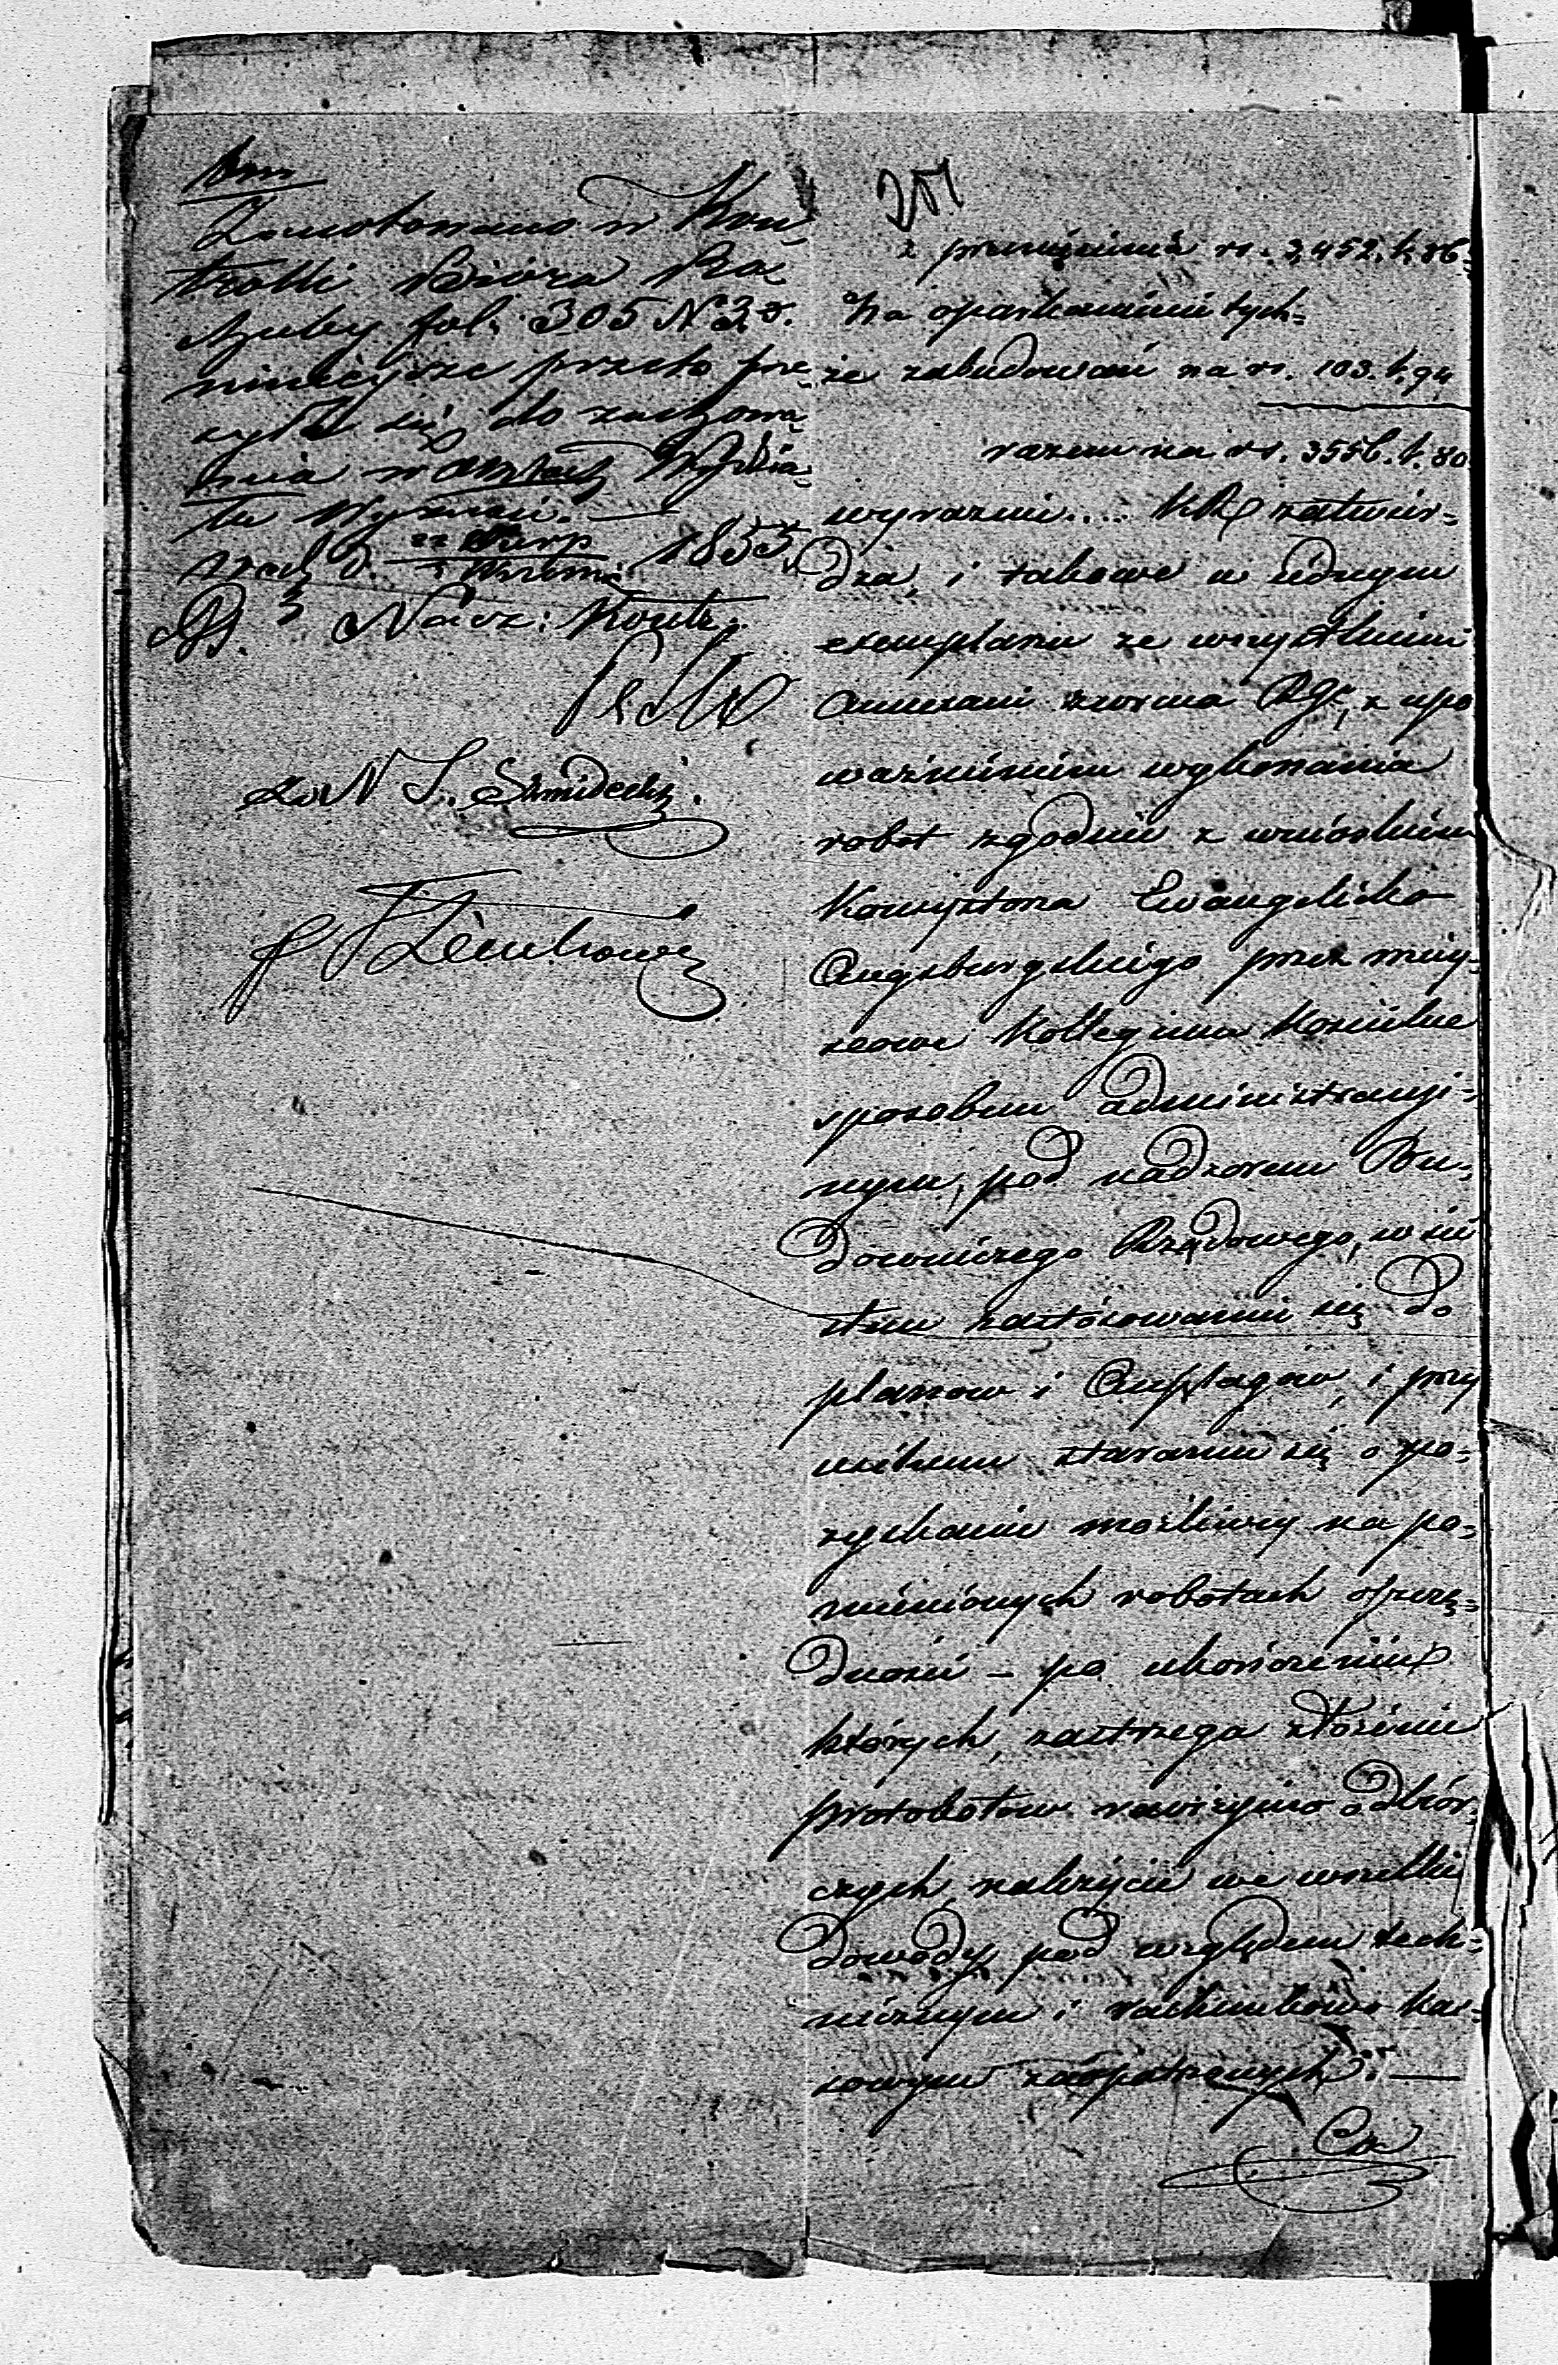 251
Zanotowano w Kon=
trolli Bióra Ra
chuby fol. 305 N 3
niniejsze przeto prze
syła się do zachowa=
nia w aktach Wydzia=
łu Wyznań.
d. 22 Sierp / 3 Września 1855
Nacz: Kontr.
z przeniesienia rs. 3,452. k. 86
Na oparkanienie tych=
że zabudowań na rs. 103. k. 94
razem na rs. 3556. k. 80
wyrazem .... KR zatwier=
dza, i takowe w jednym
exemplarzu ze wszystkiemi
annexami zwraca RGu, z upo
ważnieniem wykonania
robot zgodnie z wnioskiem
Konsystorza Ewangelicko
Augsburgskiego przez miey=
scowe Kollegium Kościelne
sposobem administracyi=
nym, pod nadzorem Bu=
downiczego Rządowego, w ści
słem zastósowaniu się do
planow i Anszlagów, i przy
usilnem staraniu się o po=
zyskanie możliwey na po=
mienionych robotach oszczę=
dności – po ukończeniu
których, zastrzega złożenie
protokołów rewizyino odbior=
czych, należycie we wszelkie
dowody pod względem tech=
nicznym i rachunkowo Kas=
sowym zaopatrzonych. —